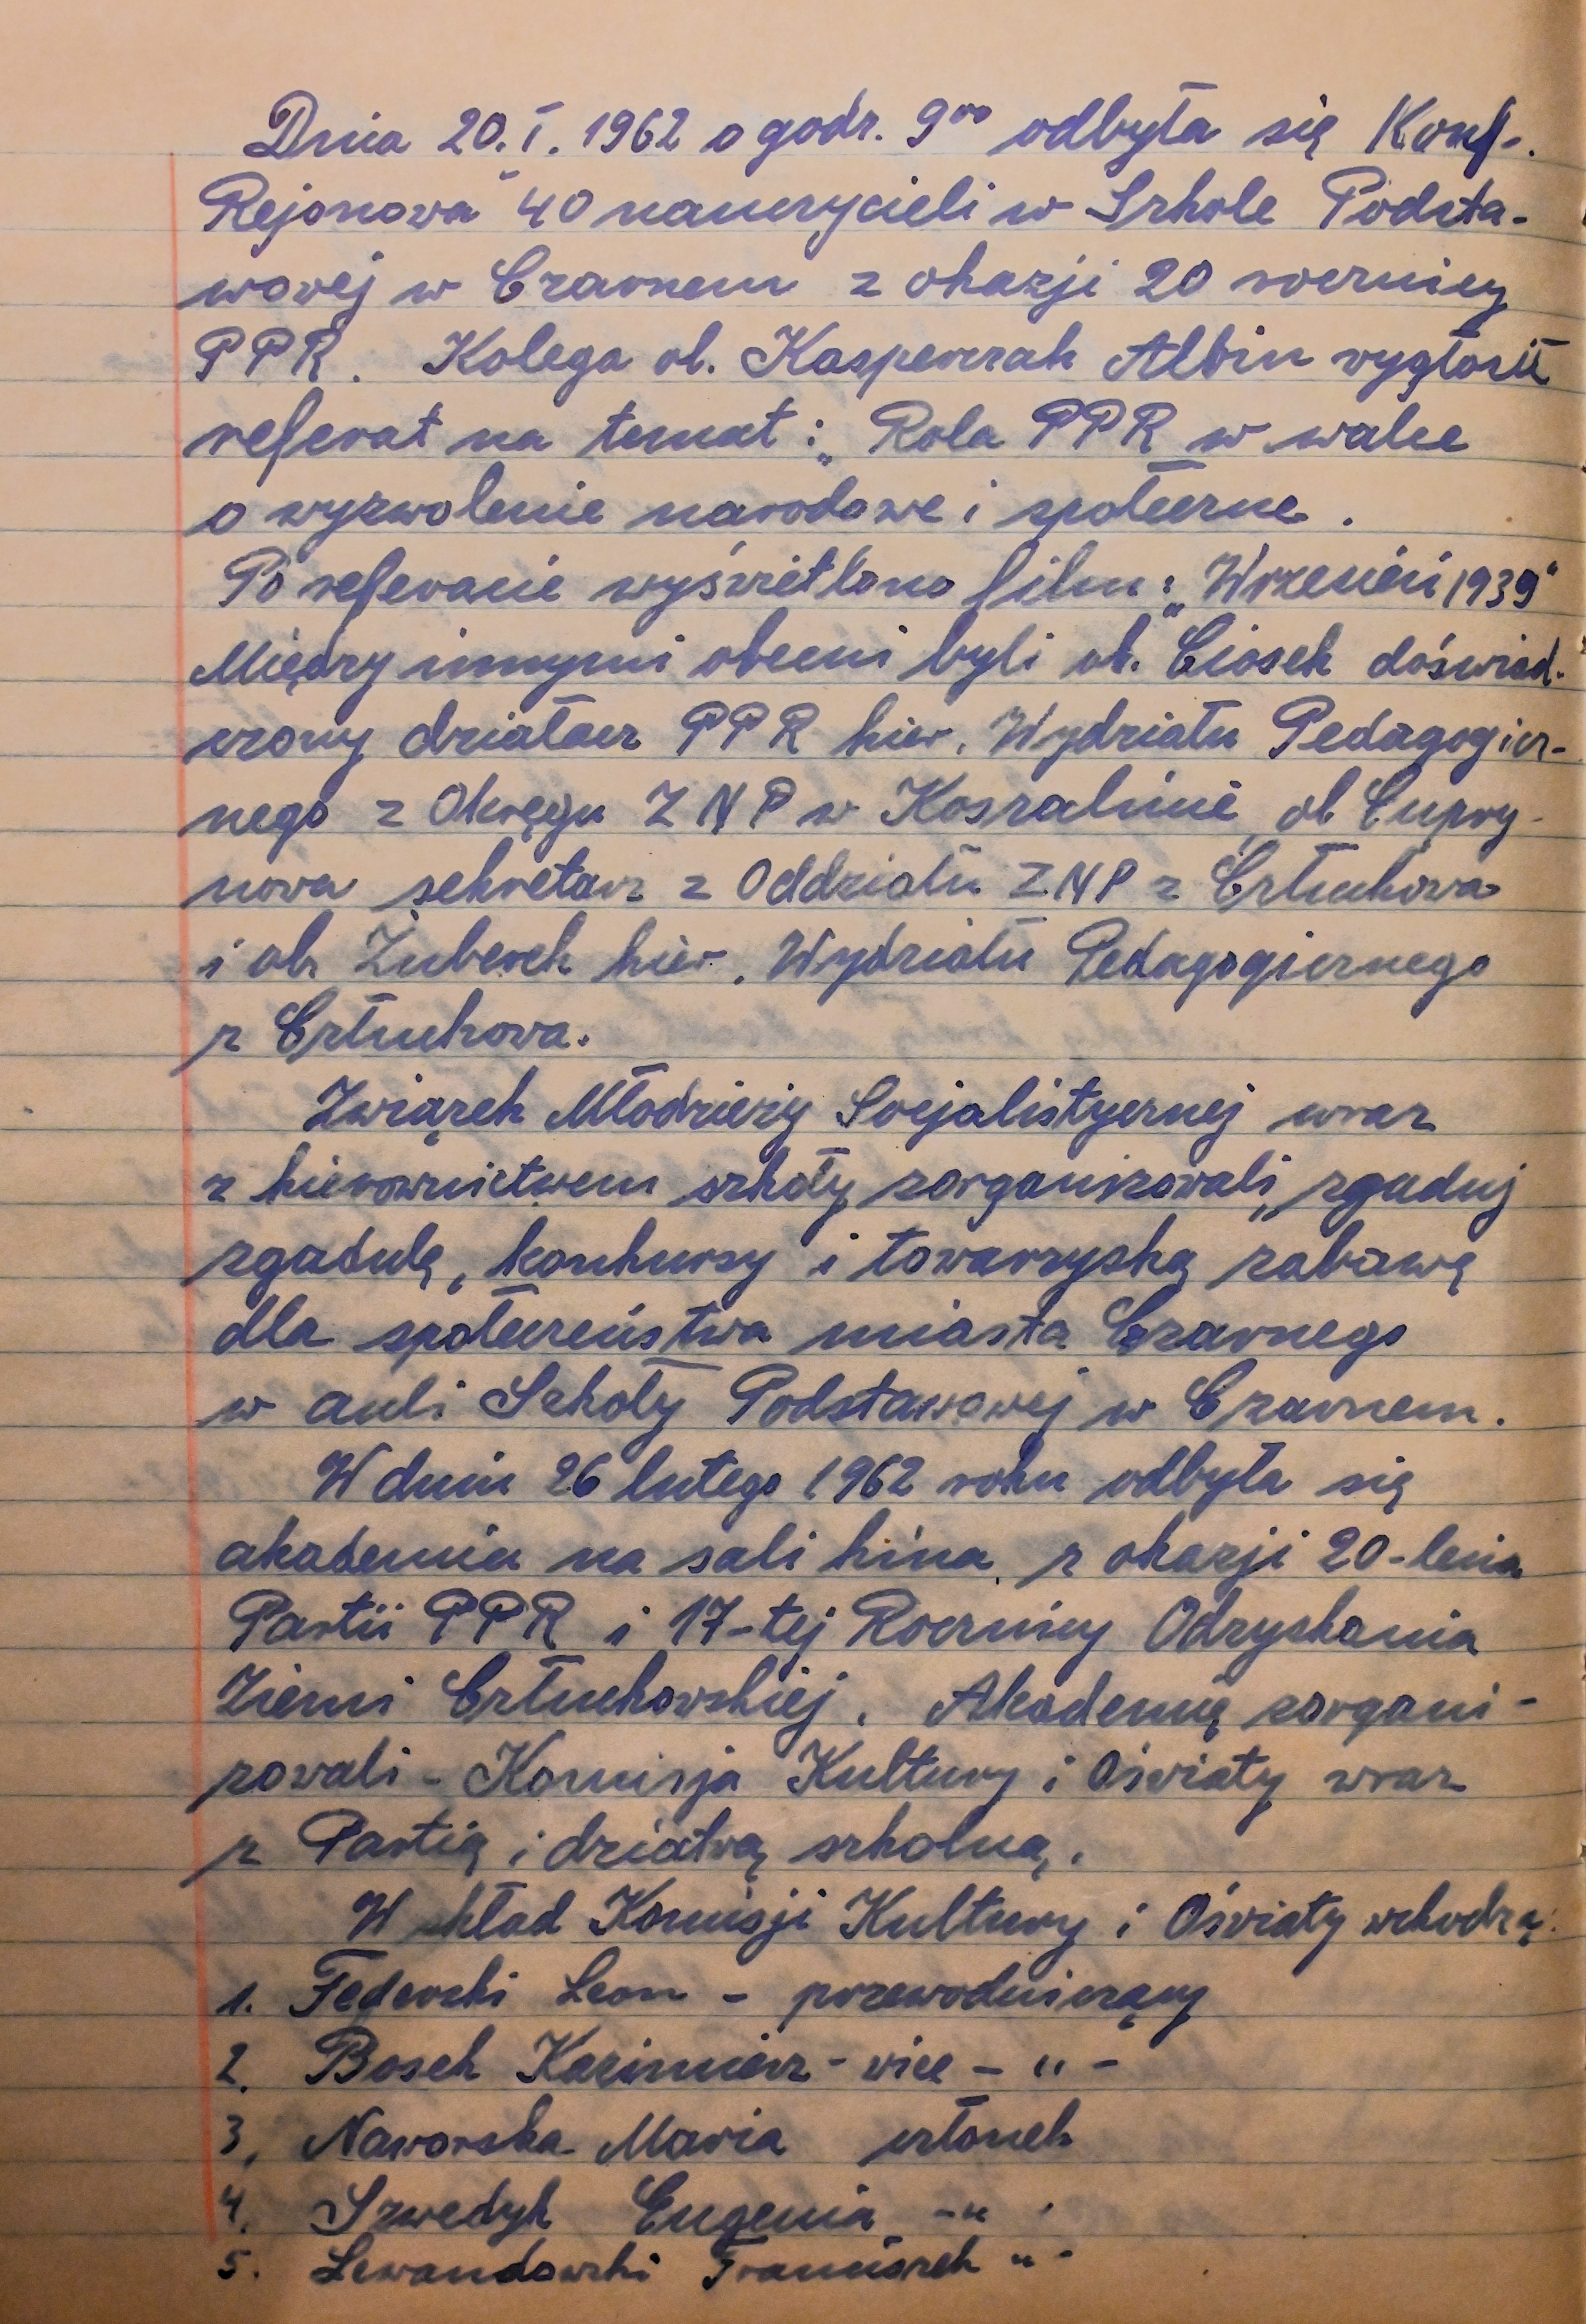 Dnia 20.I.1962 o godz. 9⁰⁰ odbyła się Konf.
Rejonowa 40 nauczycieli w Szkole Podsta-
wowej w Czarnem z okazji 20 rocznicy
PPR. Kolega ob. Kasperczak Albin wygłosił
referat na temat: „Rola PPR w walce
o wyzwolenie narodowe i społeczne.
Po referacie wyświetlono film: „Wrzesień 1939"
Między innymi obecni byli ob. Ciosek doświad-
czony działacz PPR kier. Wydziału Pedagogicz-
nego z Okręgu ZNP w Koszalinie, ob Cupry-
nowa sekretarz z Oddziału ZNP z Człuchowa
i ob. Żuberek kier. Wydziału Pedagogicznego
z Człuchowa.
Związek Młodzieży Socjalistycznej wraz
z kierownictwem szkoły zorganizowali „zgaduj
zgadulę„ konkursy i towarzyską zabawę
dla społeczeństwa miasta Czarnego
w auli Szkoły Podstawowej w Czarnem.
W dniu 26 lutego 1962 roku odbyła się
akademia na sali kina z okazji 20-lecia
Partii PPR i 17-tej Rocznicy Odzyskania
Ziemi Człuchowskiej. Akademię zorgani-
zowali - Komisja Kultury i Oświaty wraz
z Partią i dziatwą szkolną.
W skład Komisji Kultury i Oświaty wchodzą:
1. Federski Leon - przewodniczący
2. Bosek Kazimierz - wice - " -
3. Naworska Maria członek
4. Szwedyk Eugenia - "
5. Lewandowski Franciszek " -